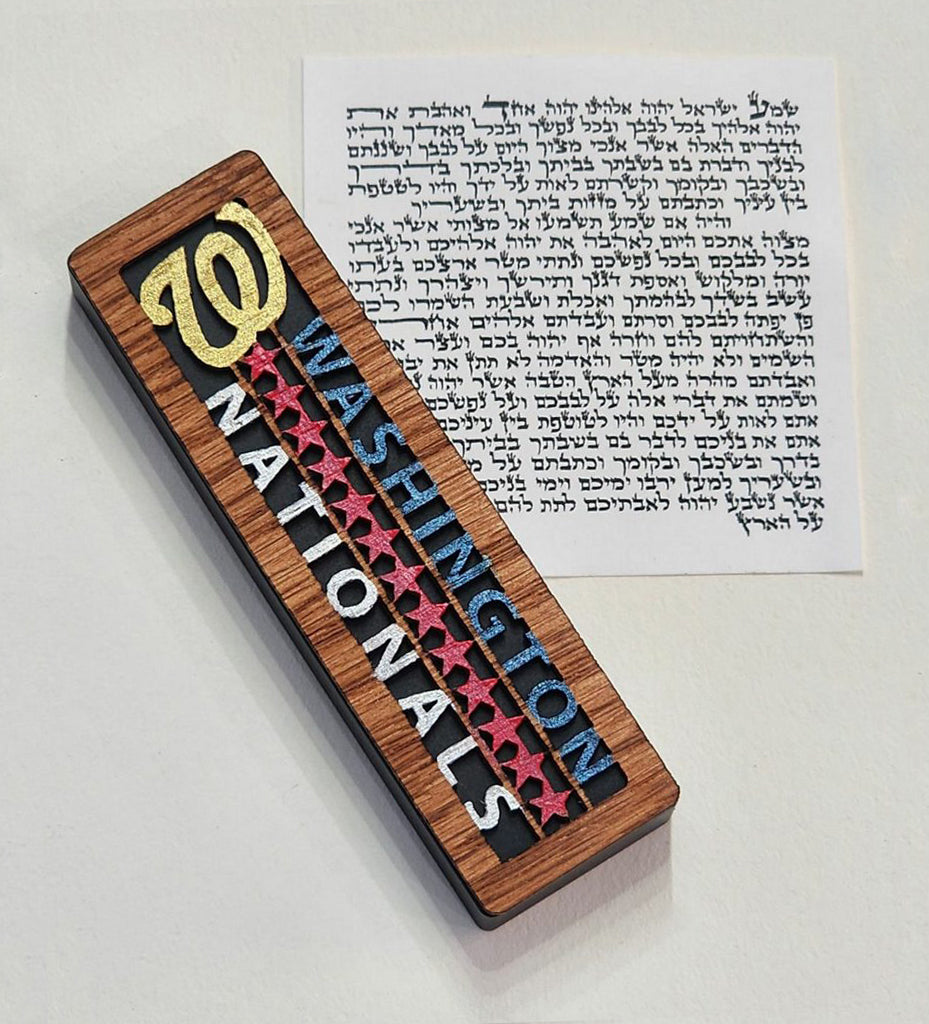 W
WASHINGTON
NATIONALS
שמע ישראל יהוה אלהינו יהוה אחד ואהבת את
יהוה אלהיך בכל לבבך ובכל נפשך ובכל מאדך והיו
הדברים האלה אשר אנכי מצוך היום על לבבך ושננתם
לבניך ודברת בם בשבתך בביתך ובלכתך בדרך
ובשכבך ובקומך וקשרתם לאות על ידך והיו לטטפת
בין עיניך וכתבתם על מזזות ביתך ובשעריך
והיה אם שמע תשמעו אל מצותי אשר אנכי
מצוה אתכם היום לאהבה את יהוה אלהיכם ולעבדו
בכל לבבכם ובכל נפשכם ונתתי מטר ארצכם בעתו
יורה ומלקוש ואספת דגנך ותירשך ויצהרך ונתתי
עשב בשדך לבהמתך ואכלת ושבעת השמרו לכם
פן יפתה לבבכם וסרתם ועבדתם אלהים
והשתחויתם להם וחרה אף יהוה בכם ועצר
השמים ולא יהיה מטר והאדמה לא תתן את
ואבדתם מהרה מעל הארץ הטבה אשר יהוה
ושמתם את דברי אלה על לבבכם ועל נפשכם
אתם לאות על ידכם והיו לטוטפת בין עיניכם
אתם את בניכם לדבר בם בשבתך בביתך
בדרך ובשכבך ובקומך וכתבתם על
ובשעריך למען ירבו ימיכם וימי בניכם
אשר נשבע יהוה לאבתיכם לתת להם
על הארץ